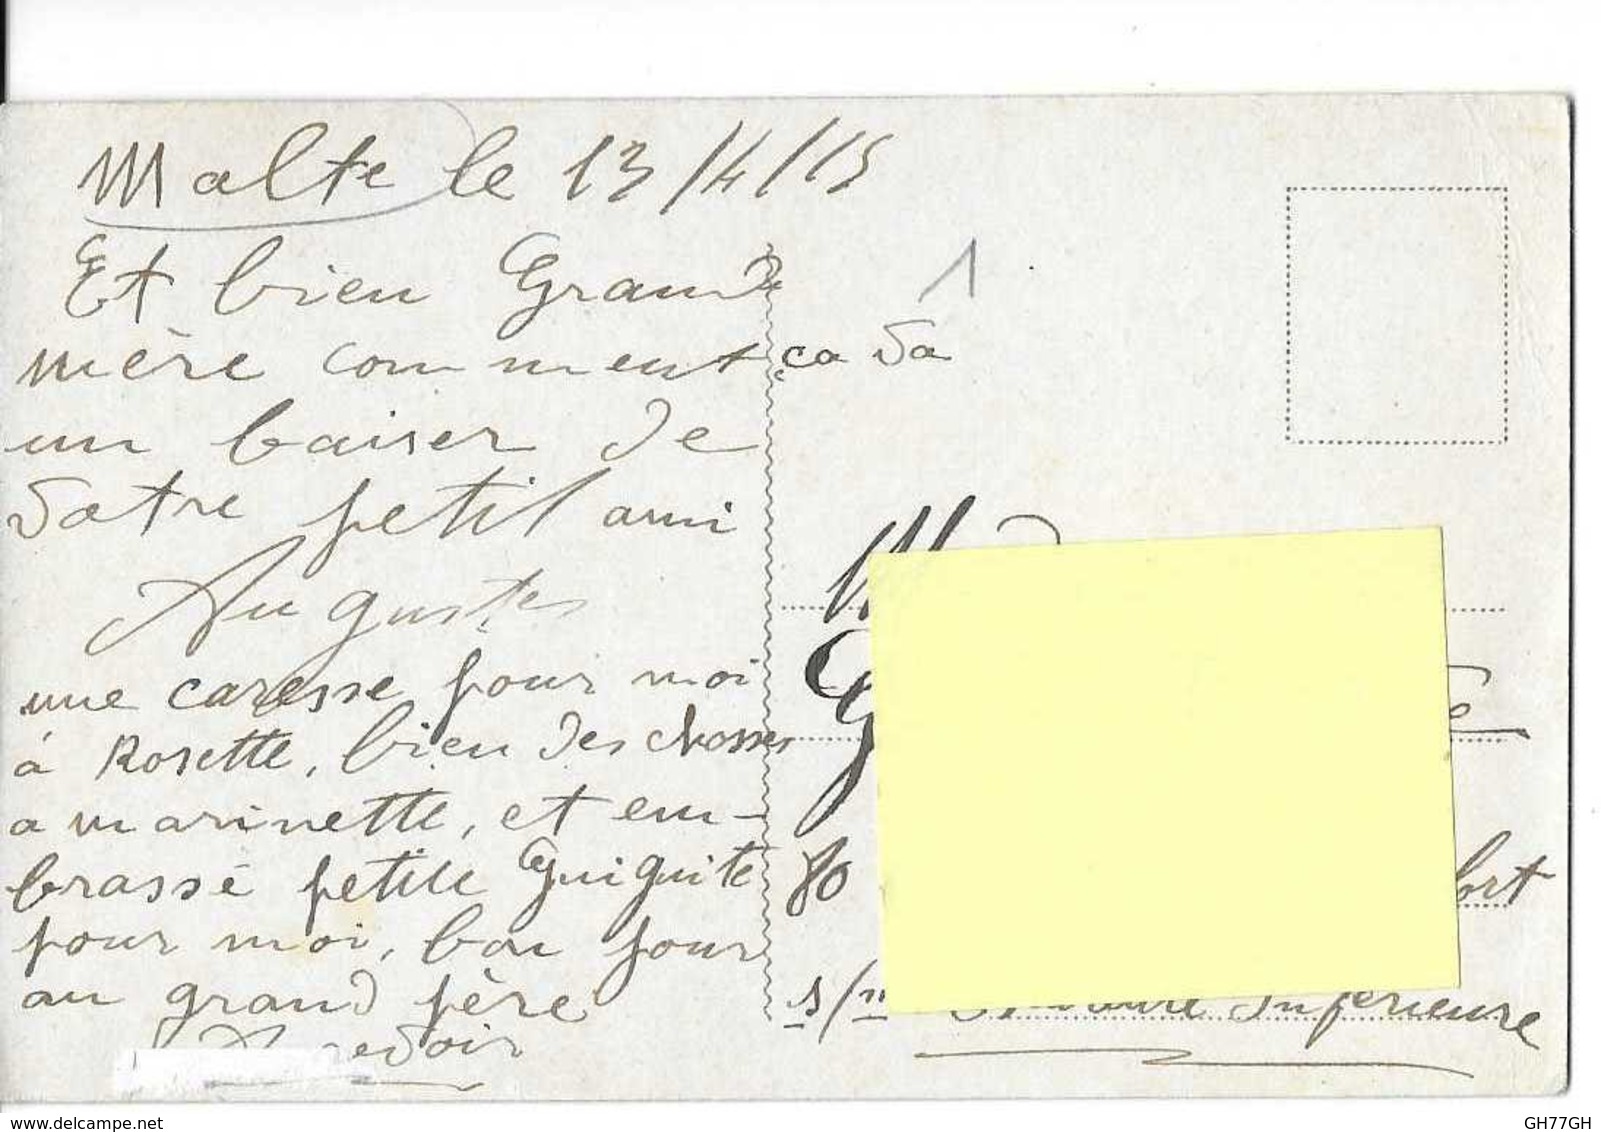 Malte le 13/4/15
1
Et bien Grand
mère comment ça va
un baiser de
votre petit ami
Auguste
une caresse pour moi
à Rosette, bien des chosses
a marinette, et em-
brassé petite Guiguite
pour moi, bon jour
au grand père
revoir
M
G
80
fort
s/m
Inférieure
delcampe.net
GH77GH